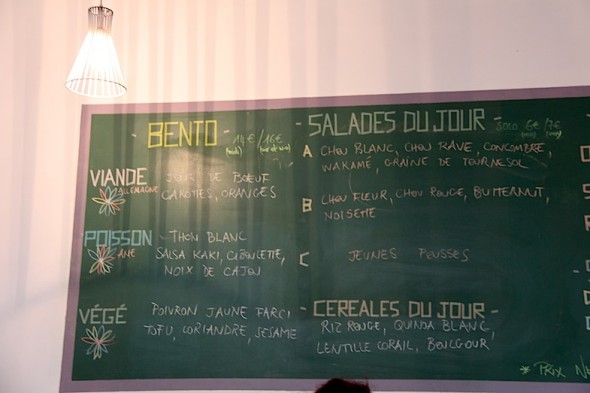 - BENTO -
VIANDE
ALLEMAGNE
JOUE DE BOEUF
CAROTTES, ORANGES
POISSON
THON BLANC
SALSA KAKI, CIBOULETTE,
NOIX DE CAJOU
VÉGÉ
POIVRON JAUNE FARCI
TOFU, CORIANDRE, SESAME
- SALADES DU JOUR -
A CHOU BLANC, CHOU RAVE, CONCOMBRE,
WAKAMÉ, GRAINE DE TOURNESOL
B CHOU FLEUR, CHOU ROUGE, BUTTERNUT,
NOISETTE
C JEUNES POUSSES
- CEREALES DU JOUR -
RIZ ROUGE, QUINOA BLANC,
LENTILLE CORAIL, BOULGOUR
* PRIX